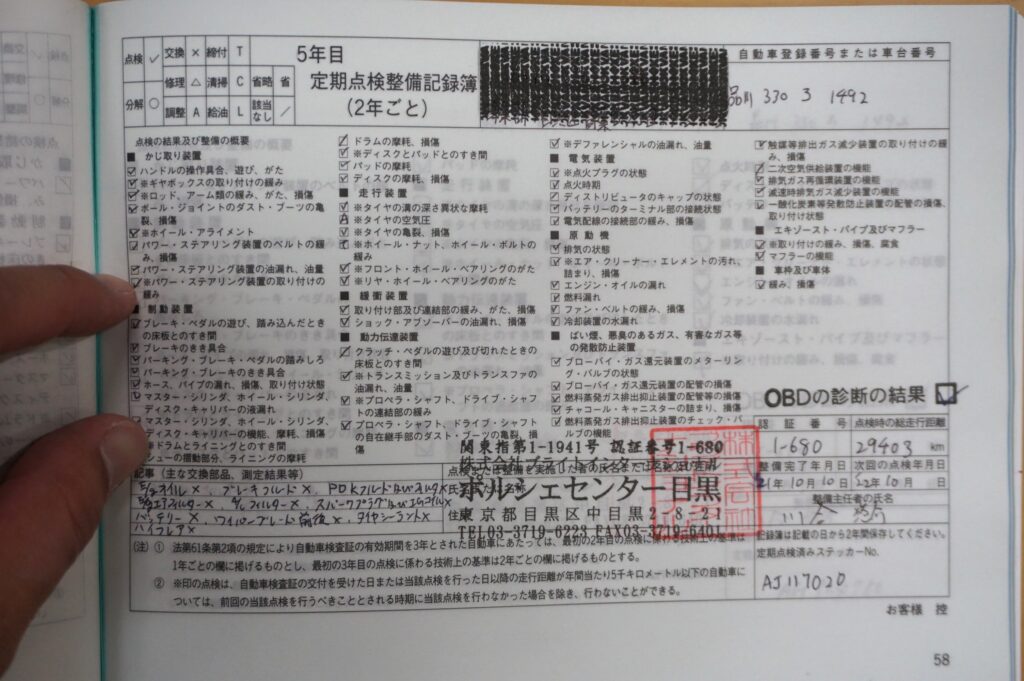 点検 ✓ 交換 × 締付 T
修理 △ 清掃 C 省略 省
分解 ○ 調整 A 給油 L 該当なし ／
5年目
定期点検整備記録簿
(2年ごと)
自動車登録番号または車台番号
品川 330 3 1492
点検の結果及び整備の概要
■ かじ取り装置
ハンドルの操作具合、遊び、がた
※ギヤボックスの取り付けの緩み
※ロッド、アーム類の緩み、がた、損傷
ボール・ジョイントのダスト・ブーツの亀
裂、損傷
※ホイール・アライメント
パワー・ステアリング装置のベルトの緩
み、損傷
パワー・ステアリング装置の油漏れ、油量
※パワー・ステアリング装置の取り付けの
緩み
■ 制動装置
ブレーキ・ペダルの遊び、踏み込んだとき
の床板とのすき間
ブレーキのきき具合
パーキング・ブレーキ・ペダルの踏みしろ
パーキング・ブレーキのきき具合
ホース、パイプの漏れ、損傷、取り付け状態
マスター・シリンダ、ホイール・シリンダ、
ディスク・キャリパーの液漏れ
マスター・シリンダ、ホイール・シリンダ、
ディスク・キャリパーの機能、摩耗、損傷
※ドラムとライニングとのすき間
シューの摺動部分、ライニングの摩耗
ドラムの摩耗、損傷
※ディスクとパッドとのすき間
パッドの摩耗
ディスクの摩耗、損傷
■ 走行装置
※タイヤの溝の深さ異状な摩耗
※タイヤの空気圧
※タイヤの亀裂、損傷
※ホイール・ナット、ホイール・ボルトの
緩み
※フロント・ホイール・ベアリングのがた
※リヤ・ホイール・ベアリングのがた
■ 緩衝装置
取り付け部及び連結部の緩み、がた、損傷
ショック・アブソーバーの油漏れ、損傷
■ 動力伝達装置
クラッチ・ペダルの遊び及び切れたときの
床板とのすき間
※トランスミッション及びトランスファの
油漏れ、油量
※プロペラ・シャフト、ドライブ・シャフト
の連結部の緩み
プロペラ・シャフト、ドライブ・シャフト
の自在継手部のダスト・ブーツの亀裂、損
傷
※デファレンシャルの油漏れ、油量
■ 電気装置
※点火プラグの状態
点火時期
ディストリビュータのキャップの状態
バッテリーのターミナル部の接続状態
電気配線の接続部の緩み、損傷
■ 原動機
排気の状態
※エア・クリーナー・エレメントの汚れ、
詰まり、損傷
エンジン・オイルの漏れ
燃料漏れ
ファン・ベルトの緩み、損傷
冷却装置の水漏れ
■ ばい煙、悪臭のあるガス、有害なガス等
の発散防止装置
ブローバイ・ガス還元装置のメターリン
グ・バルブの状態
ブローバイ・ガス還元装置の配管の損傷
燃料蒸発ガス排出抑止装置の配管等の損傷
チャコール・キャニスターの詰まり、損傷
燃料蒸発ガス排出抑止装置のチェック・バ
ルブの機能
触媒等排出ガス減少装置の取り付けの緩
み、損傷
二次空気供給装置の機能
排気ガス再循環装置の機能
減速時排気ガス減少装置の機能
一酸化炭素等発散防止装置の配管の損傷、
取り付け状態
■ エキゾースト・パイプ及びマフラー
※取り付けの緩み、損傷、腐食
マフラーの機能
■ 車枠及び車体
緩み、損傷
OBDの診断の結果
認証番号 点検時の総走行距離
1-680 29403 km
整備完了年月日 次回の点検年月日
21年 10月 10日 22年 10月 日
整備主任者の氏名
記事（主な交換部品、測定結果等）
関東指第1-1941号 認証番号1-680
ポルシェセンター目黒
東京都目黒区中目黒2-8-21
TEL03-3719-6223 FAX03-3719-6401
記録簿は記載の日から2年間保存してください。
定期点検済みステッカーNo.
AJ117020
(注) ① 法第61条第2項の規定により自動車検査証の有効期間を3年とされた自動車にあたっては、最初の2年目の点検に係わる技術上の基準は
1年ごとの欄に掲げるものとし、最初の3年目の点検に係わる技術上の基準は2年ごとの欄に掲げるものとする。
② ※印の点検は、自動車検査証の交付を受けた日または当該点検を行った日以降の走行距離が年間当たり5千キロメートル以下の自動車に
ついては、前回の当該点検を行うべきこととされる時期に当該点検を行わなかった場合を除き、行わないことができる。
お客様 控
58